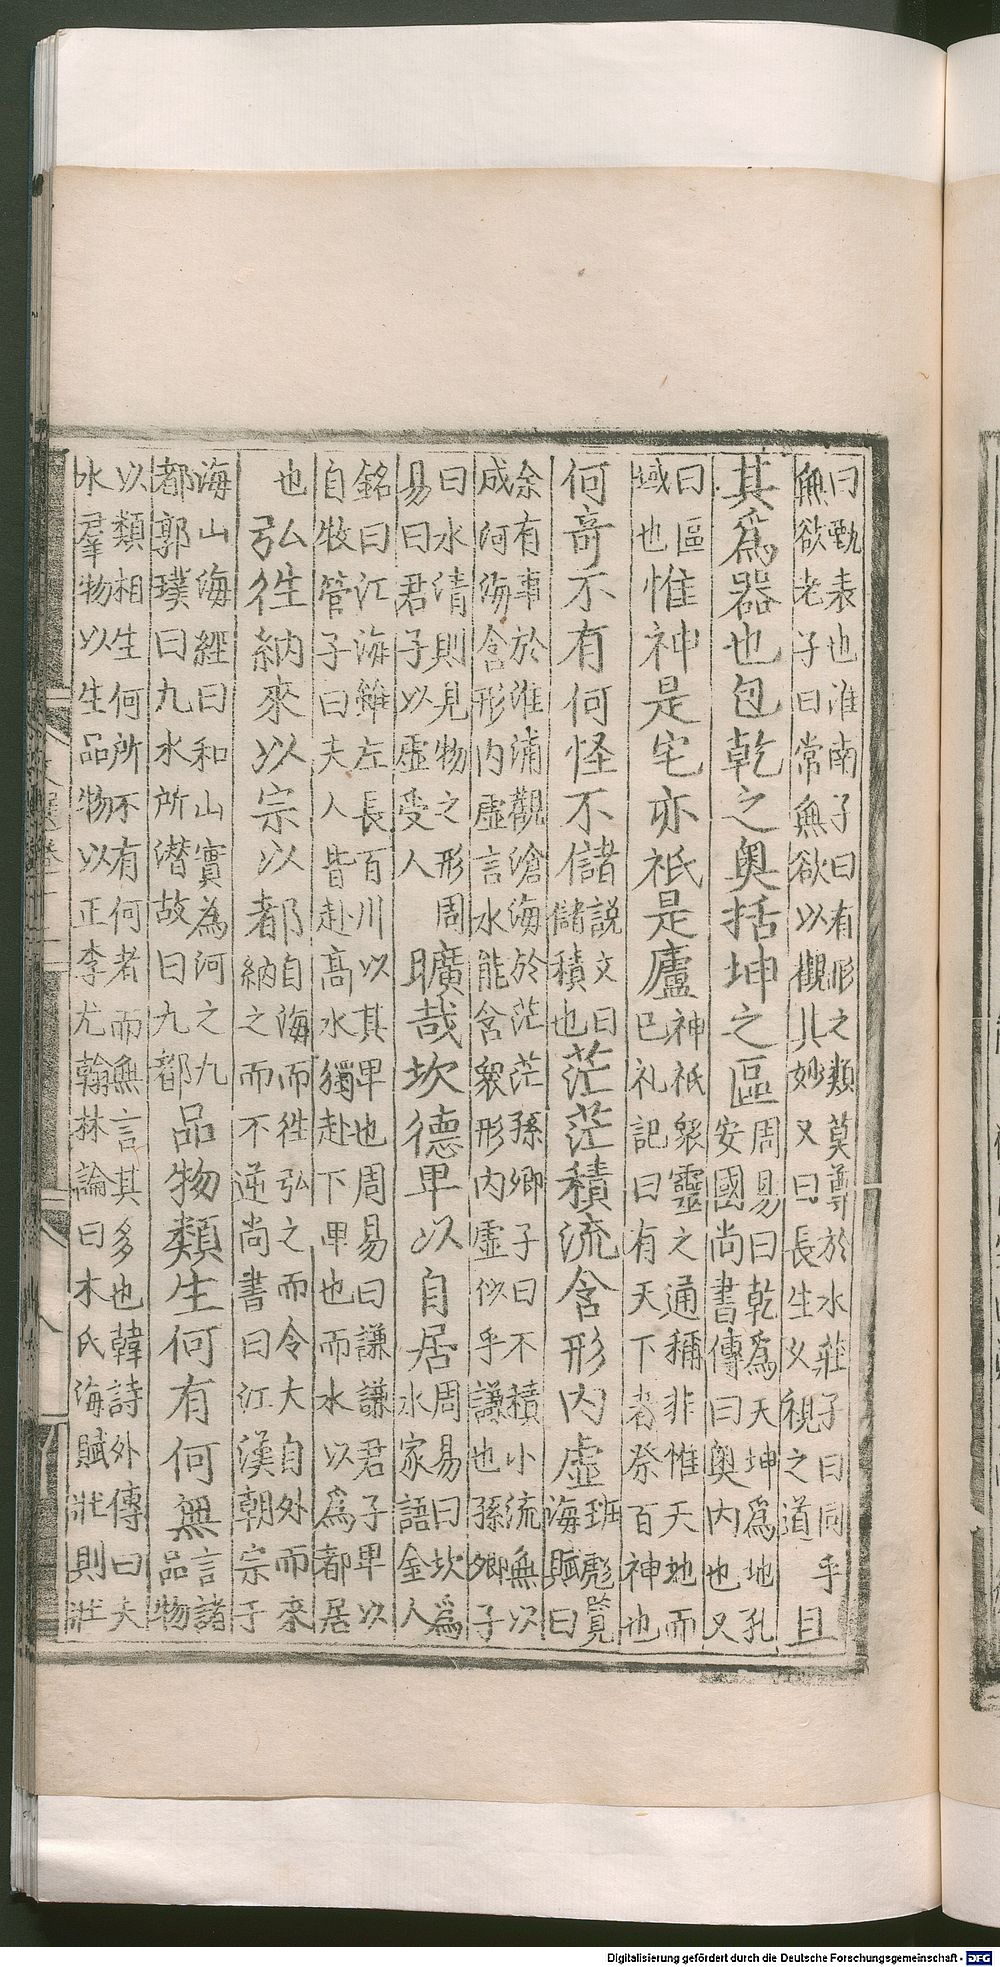 曰甄表也淮南子曰有形之類莫尊於水莊子曰同乎
無欲老子曰常無欲以觀其妙又曰長生乂視之道
且
其爲器也包乾之奥括坤之區
周易曰乾爲天坤爲地孔
安國尚書傳曰奥内也又
曰區
域也
惟神是宅亦祇是廬
神祇衆靈之通稱非惟天地而
已礼記曰有天下者祭百神也
何奇不有何怪不儲
説文曰
儲積也
茫茫積流含形内虛
班彪覧
海賦曰
余有事於淮浦觀滄海於茫茫孫卿子曰不積小流無以
成河海含形内虛言水能含衆形内虛似乎謙也孫卿子
曰水清則見物之形周
易曰君子以虛受人
曠哉坎德卑以自居
周易曰坎爲
水家語金人
銘曰江海雖左長百川以其卑也周易曰謙謙君子卑以
自牧管子曰夫人皆赴高水獨赴下卑也而水以爲都居
也
弘徃納來以宗以都
自海而徃弘之而令大自外而來
納之而不逆尚書曰江漢朝宗于
海山海經曰和山實為河之九
都郭璞曰九水所潜故曰九都
品物類生何有何無
言諸
品物
以類相生何所不有何者而無言其多也韓詩外傳曰夫
水羣物以生品物以正李尤翰林論曰木氏海賦壯則壯
Digitalisierung gefördert durch die Deutsche Forschungsgemeinschaft - DFG